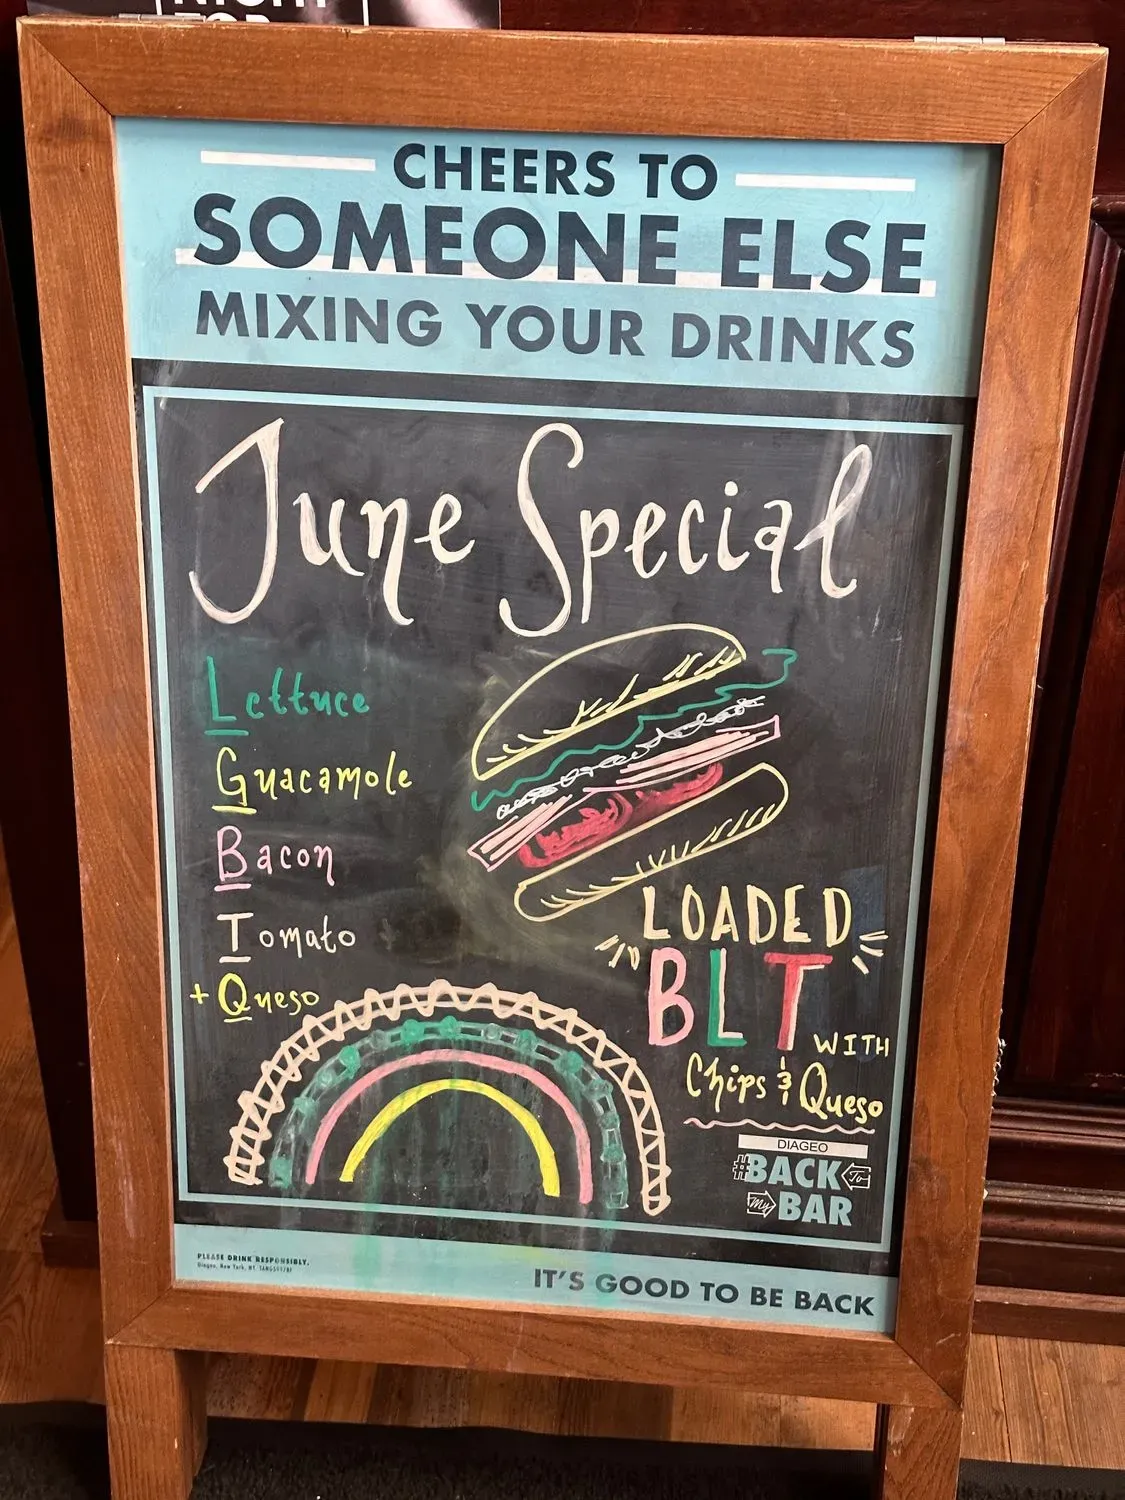 NIGHT
FOR
CHEERS TO
SOMEONE ELSE
MIXING YOUR DRINKS
June Special
Lettuce
Guacamole
Bacon
Tomato
+ Queso
LOADED
BLT
WITH
Chips & Queso
DIAGEO
#BACK To
My BAR
PLEASE DRINK RESPONSIBLY.
Diageo, New York, NY.
IT'S GOOD TO BE BACK